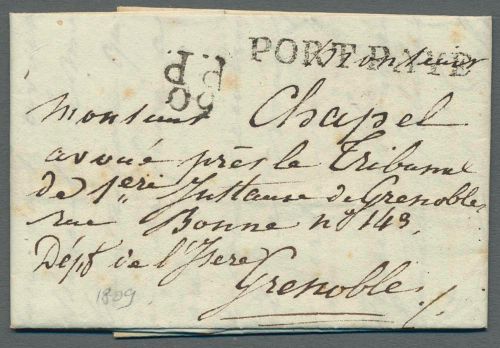 P.P.
60
PORT PAYÉ
Monsieur
Monsieur Chapel
avoué près le Tribunal
de 1ere Instance de Grenoble
rue Bonne no 143
Dépt de l'Isere
Grenoble
1809